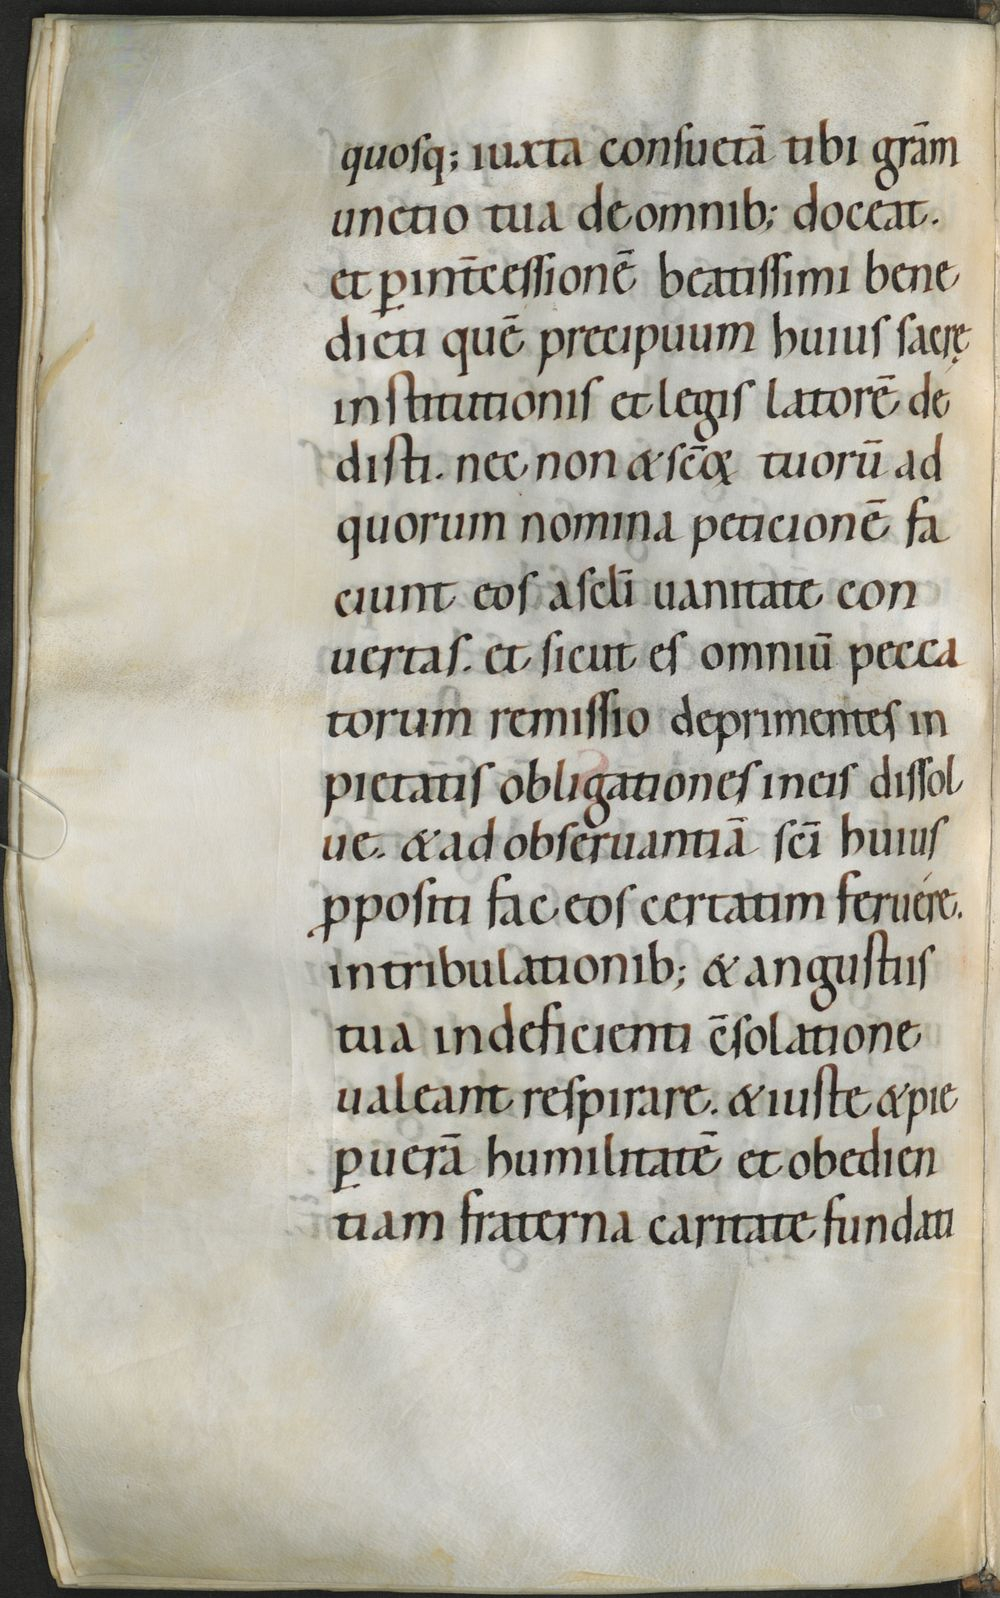 quosq; iuxta consuetā tibi grām
unctio tua de omnib; doceat.
et ꝑ int̄cessionē beatissimi bene
dicti quē precipuum huius sacrę
institutionis et legis latorē de
disti. nec non & scōꝝ tuorū ad
quorum nomina peticionē fa
ciunt eos a sclī uanitate con
uertas. et sicut es omniū pecca
torum remissio deprimentes in
pietatis obligationes in eis dissol
ue. & ad obseruantiā scī huius
ꝓpositi fac eos certatim feruére.
in tribulationib; & angustiis
tua indeficienti c̄solatione
ualeant respirare. & iuste & pie
ꝑ uerā humilitatē et obedien
tiam fraterna caritate fundati